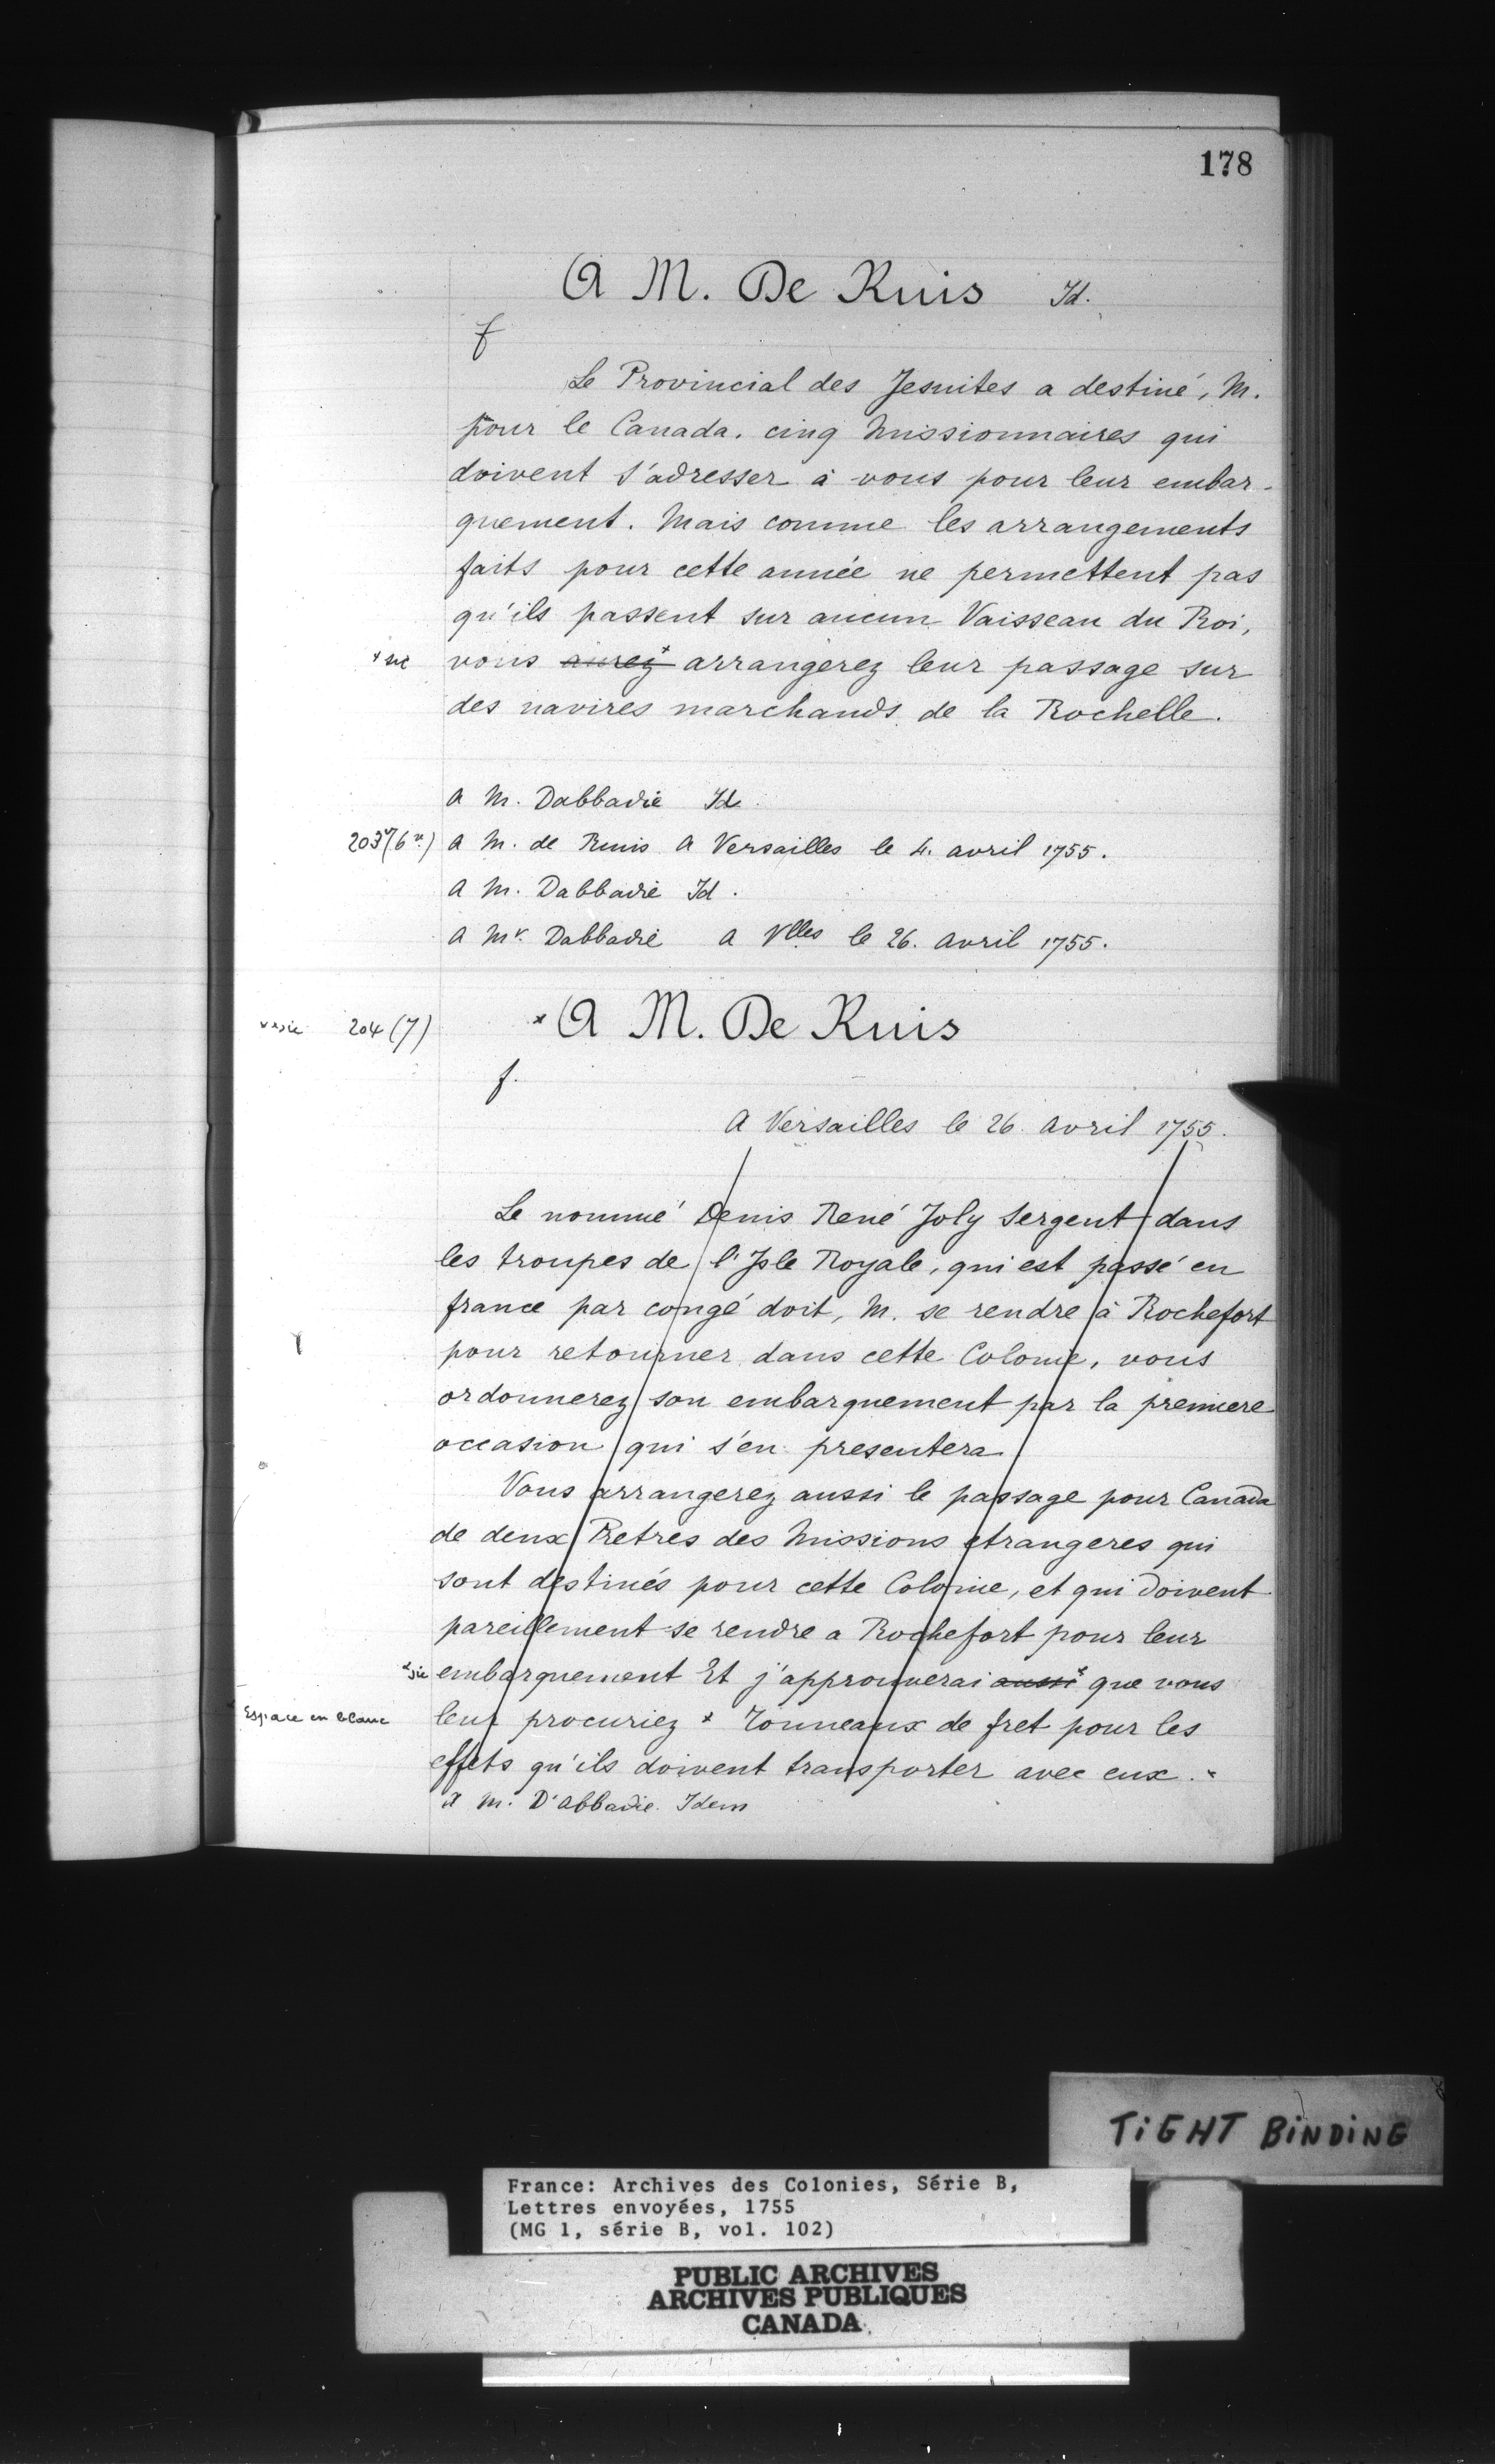 178
A M. De Ruis Id.
f
Le Provincial des Jesuites a destiné, M.
pour le Canada. cinq Missionnaires qui
doivent s'adresser à vous pour leur embar-
quement. Mais comme les arrangements
faits pour cette année ne permettent pas
qu'ils passent sur aucun Vaisseau du Roi,
vous aurez* arrangerez leur passage sur
des navires marchands de la Rochelle.
A M. Dabbadie Id.
203v(6v) A M. de Ruis A Versailles le 4. avril 1755.
A M. Dabbadie Id.
A Mr. Dabbadie A Vlles le 26. avril 1755.
204 (7) * A M. De Ruis
f.
A Versailles le 26. avril 1755.
Le nommé Denis René Joly Sergent dans
les troupes de l'Isle Royale, qui est passé en
france par congé doit, M. se rendre à Rochefort
pour retourner dans cette Colonie, vous
ordonnerez son embarquement par la premiere
occasion qui s'en presentera.
Vous arrangerez aussi le passage pour Canada
de deux Pretres des Missions etrangeres qui
sont destinés pour cette Colonie, et qui doivent
pareillement se rendre a Rochefort pour leur
*sic embarquement Et j'approuverai aussi* que vous
Espace en blanc leur procuriez * Tonneaux de fret pour les
effets qu'ils doivent transporter avec eux. *
A M. D'Abbadie. Idem
TIGHT BINDING
France: Archives des Colonies, Série B,
Lettres envoyées, 1755
(MG 1, série B, vol. 102)
PUBLIC ARCHIVES
ARCHIVES PUBLIQUES
CANADA